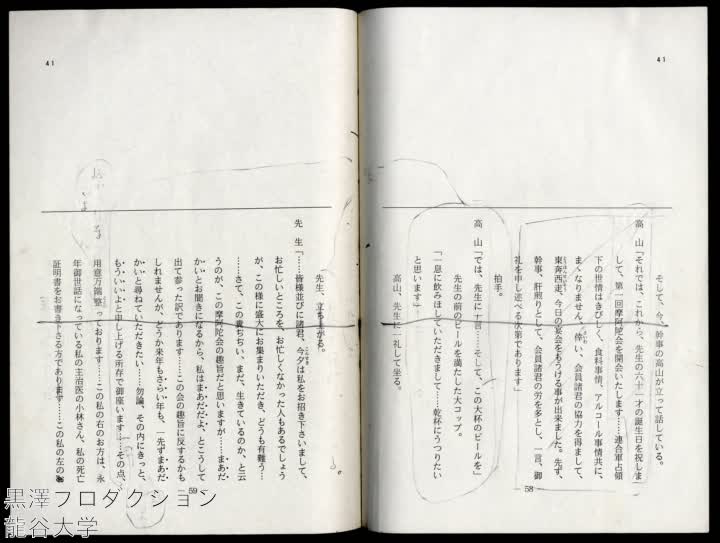 41
そして、今、幹事の高山が立って話している。
高 山「それでは、これから、先生の六十一才の誕生日を祝しま
して、第一回摩阿陀会を開会いたします……連合軍占領
下の世情はきびしく、食料事情、アルコール事情共に、
まゝなりません。倖い、会員諸君の協力を得まして、
東奔西走、今日の宴会をもうける事が出来ました。先ず、
幹事、肝煎りとして、会員諸君の労を多とし、一言、御
礼を申し述べる次第であります」
拍手。
高 山「では、先生に一言……そして、この大杯のビールを」
先生の前のビールを満たした大コップ。
「一息に飲みほしていただきまして……乾杯にうつりたい
と思います」
高山、先生に一礼して坐る。
58
41
先生、立ち上がる。
先 生「……皆様並びに諸君、今夕は私をお招き下さいまして、
お忙しいところを、お忙しくなかった人もあるでしょう
が、この様に盛大にお集まりいただき、どうも有難う…
…さて、この糞ぢぢい、まだ、生きているのか、と云
うのが、この摩阿陀会の趣旨だと思いますが……まあだ
かいとお聞きになるから、私はまあだだよ、とこうして
出て参った訳であります……この会の趣旨に反するかも
しれませんが、どうか来年もさらい年も、一先ずまあだ
かいと尋ねていただきたい……勿論、その内にきっと、
もういいよと申し上げる所存で御座います……その点、
用意万端整っております……この私の右のお方は、永
年御世話になっている私の主治医の小林さん、私の死亡
証明書をお書き下さる方であります……この私の左の
59
黒澤プロダクション
龍谷大学